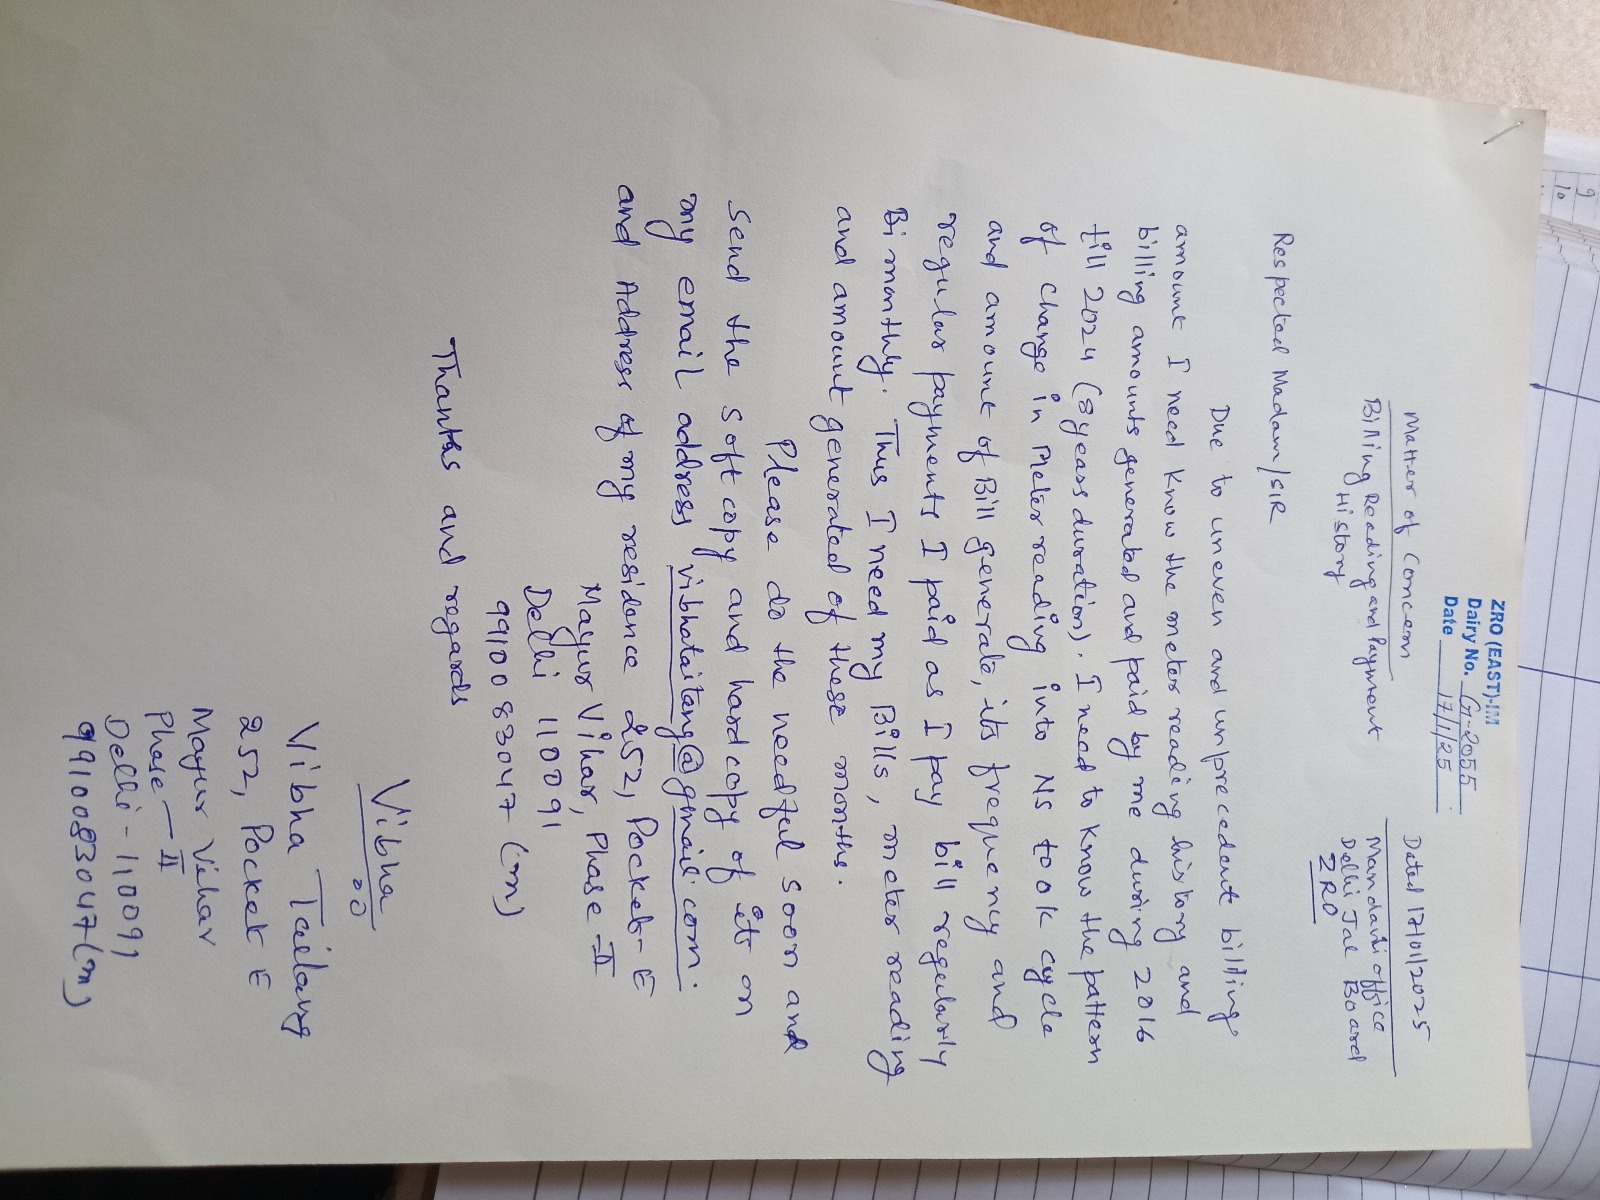 ZRO (EAST)-III
Dairy No. G-2055
Date 17/1/25
Dated 17/01/2025
Matter of Concern
Mandawli office
Billing Reading and Payment
Delhi Jal Board
History
ZRO
Respected Madam/SIR
Due to uneven and unprecedent billing
amount I need know the meter reading history and
billing amounts generated and paid by me during 2016
till 2024 (8 years duration). I need to know the pattern
of change in Meter reading into NS to OK cycle
and amount of Bill generate, its frequemy and
regular payments I paid as I pay bill regularly
Bimonthly. Thus I need my Bills, meter reading
and amount generated of these months.
Please do the needful soon and
send the soft copy and hard copy of its on
my email address vibhataitang@gmail.com.
and Address of my residence 252, Pocket-E
Mayur Vihar, Phase-II
Delhi 110091
9910083047 (m)
Thanks and regards
Vibha
Vibha Tailang
252, Pocket E
Mayur Vihar
Phase-II
Delhi-110091
9910083047(m)
9
10